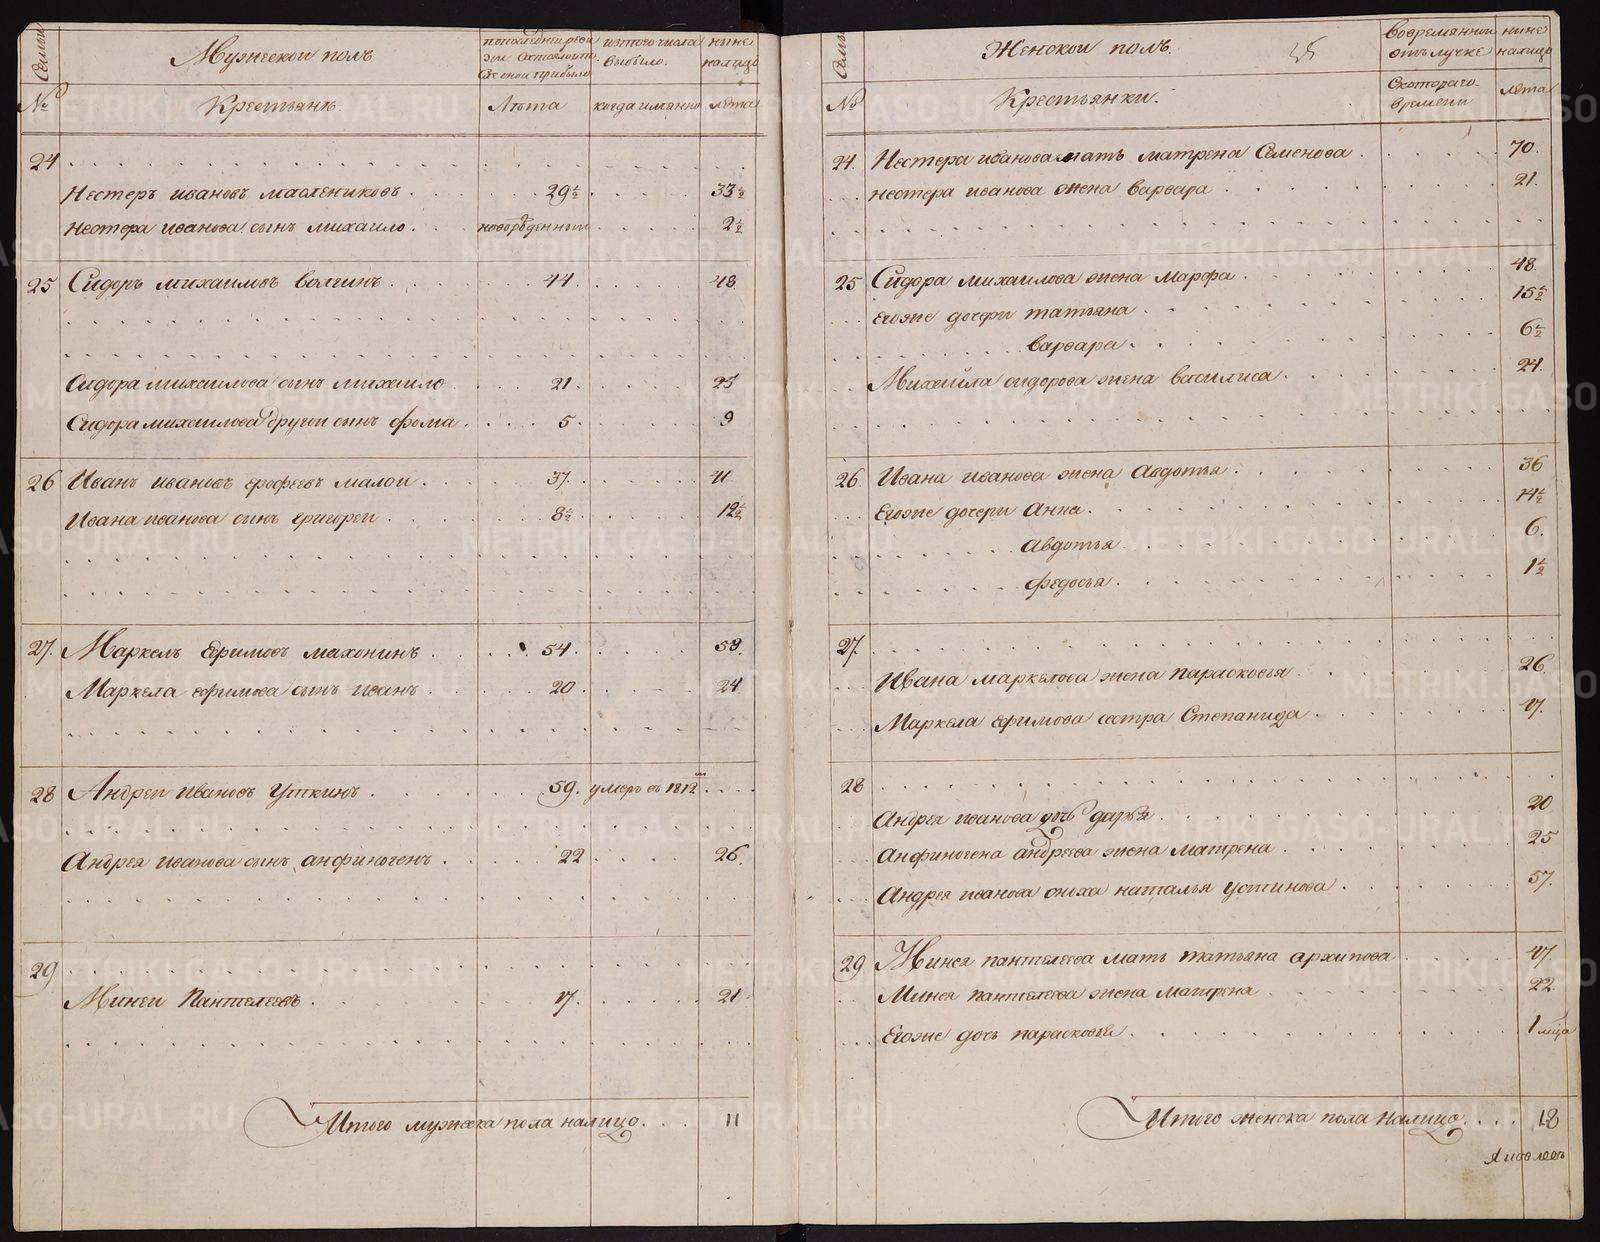 Семьи
Мужескои полъ
по последнеи реви
зіи состояло и по
сле оной прибыло
изтого числа
выбыло.
ныне
налицо
№
Крестьянъ.
Лѣта
когда имянно
лѣта
24
Нестеръ ивановъ маслениковъ . 29½ 33½
нестера иванова сынъ михаило . новорожденный 2½
25 Сидоръ михаиловъ волгинъ . 44 . 48
Сидора михаилова сынъ михаило 21 . 25
Сидора михаилова другои сынъ фома . 5 . 9
26 Иванъ ивановъ ерофеевъ малои . 37 . 41
Ивана иванова сынъ григореи . 8½ 12½
27. Маркелъ Ефимовъ махонинъ . 54 . 58.
Маркела ефимова сынъ иванъ . 20 . 24
28 Андреи ивановъ Уткинъ . 59. умеръ въ 1812м
Андрея иванова сынъ анфиногенъ . 22 26.
29
Минеи Пантелеевъ . 17. 21
Итого мужеска пола налицо . 11
Семьи
Женскои полъ.
25
вовремянной
отлучке
ныне
налицо
№
Крестьянки.
Скотораго
времяни
лѣта
24. Нестера иванова мать матрена Семенова . 70.
нестера иванова жена варвара . 21.
25 Сидора михаилова жена марфа . 48.
Егоже дочери татьяна . 15½
варвара . 6½
Михаила сидорова жена василиса . 24.
26. Ивана иванова жена Авдотья . 36
Егоже дочери Анна . 14½
авдотья 6.
федосья . 1½
27.
Ивана маркелова жена парасковья . 26
Маркела ефимова сестра Степанида . 47.
28
Андрея иванова дочь дарья . 20
Анфиногена андреева жена матрена . 25
Андрея иванова сноха наталья устинова . 57.
29 Минея пантелеева мать татьяна архипова 47.
Минея пантелеева жена матрена . 22.
Егоже дочь парасковья . 1 м͠ца
Итого женска пола налицо . 18
Яковлевъ
METRIKI.GASO-URAL.RU